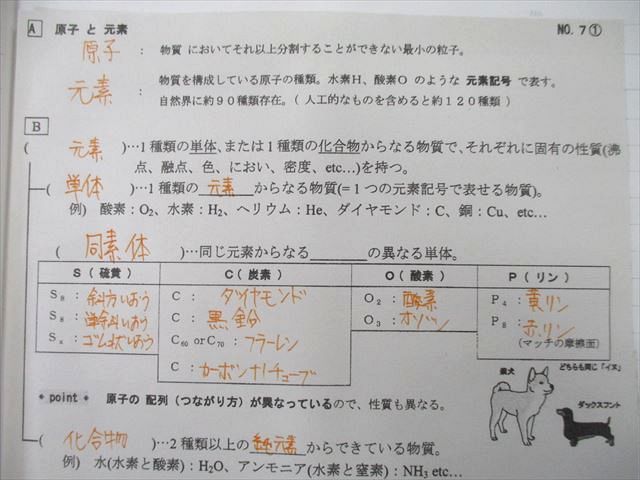 A 原子 と 元素 NO. 7①
原子 : 物質 においてそれ以上分割することができない最小の粒子。
元素 : 物質を構成している原子の種類。水素H、酸素O のような 元素記号 で表す。
自然界に約90種類存在。( 人工的なものを含めると約120種類 )
B
( 元素 )…1種類の単体、または1種類の化合物からなる物質で、それぞれに固有の性質(沸
点、融点、色、におい、密度、etc…)を持つ。
( 単体 )…1種類の 元素 からなる物質(=1つの元素記号で表せる物質)。
例) 酸素:O₂、水素:H₂、ヘリウム:He、ダイヤモンド:C、銅:Cu、etc…
( 同素体 )…同じ元素からなる の異なる単体。
S ( 硫黄 ) C ( 炭素 ) O ( 酸素 ) P ( リン )
S₈ : 斜方いおう C : ダイヤモンド O₂ : 酸素 P₄ : 黄リン
S₈ : 単斜いおう C : 黒鉛 O₃ : オゾン P₈ : 赤リン
Sₓ : ゴム状いおう C₆₀ or C₇₀ : フラーレン (マッチの摩擦面)
C : カーボンナノチューブ
point 原子の 配列 (つながり方) が異なっているので、性質も異なる。
どちらも同じ「イヌ」
柴犬
ダックスフント
( 化合物 )…2種類以上の 元素 からできている物質。
例) 水(水素と酸素):H₂O、アンモニア(水素と窒素):NH₃ etc…